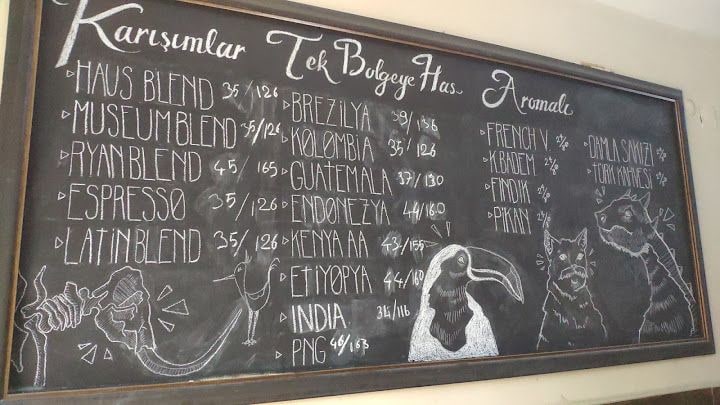 Karışımlar
▷HAUS BLEND 35/126
▷MUSEUM BLEND 35/126
▷RYAN BLEND 45/165
▷ESPRESSO 35/126
▷LATIN BLEND 35/126
Tek Bolgeye Has
▷BREZİLYA 39/136
▷KOLOMBİA 35/126
▷GUATEMALA 37/130
▷ENDONEZYA 44/160
▷KENYA AA 43/155
▷ETİYOPYA 44/160
▷INDIA 34/116
▷PNG 46/163
Aromalı
▷FRENCH V.
▷K.BADEM
▷FINDIK
▷PİKAN
▷DAMLA SAKIZI
▷TÜRK KAHVESİ